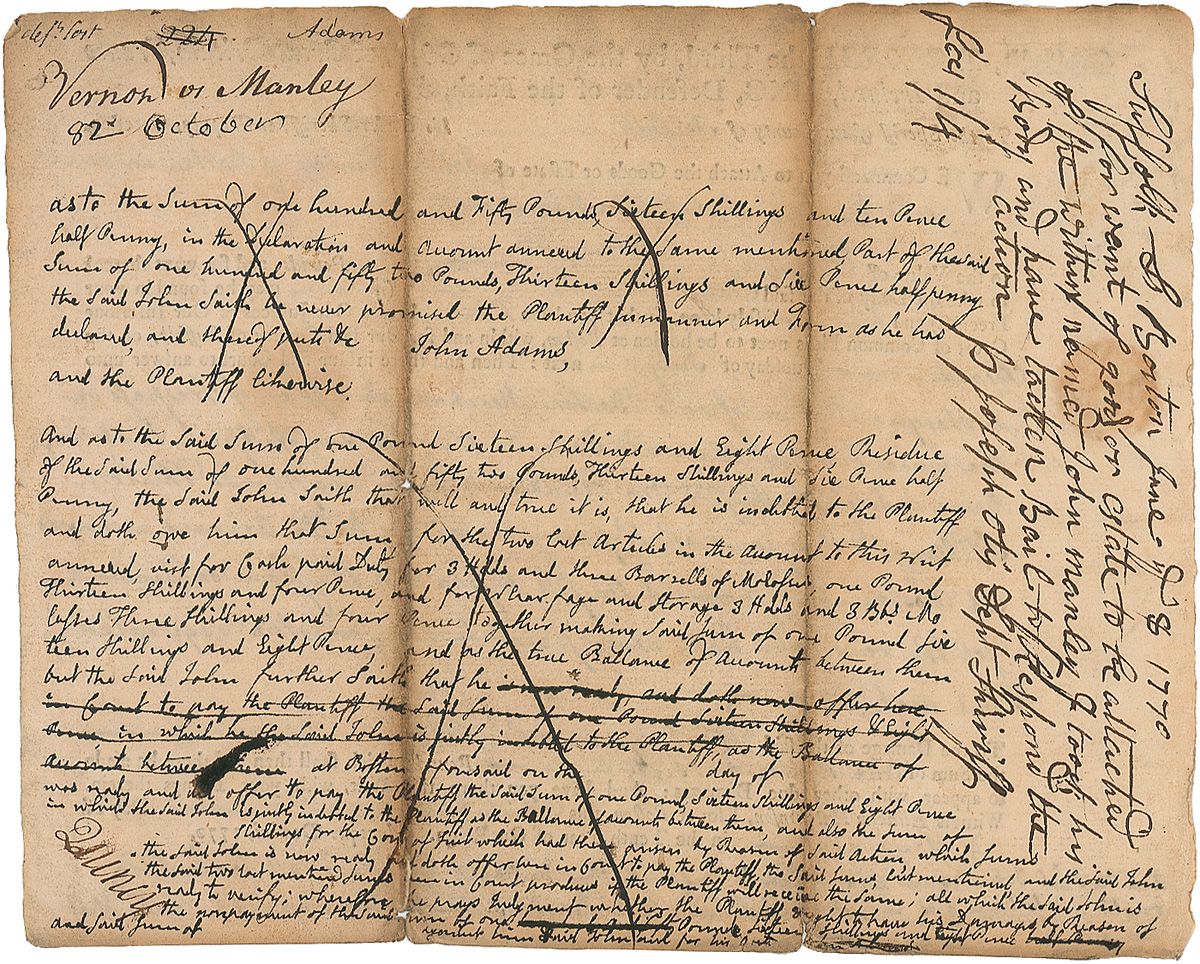 defts Cost 224. Adams
Vernon vs Manley
82d October
as to the Sum of one hundred and Fifty Pounds, Sixteen Shillings and ten Pence
half Penny, in the Declaration and Account annexed to the Same mentioned Part of the said
Sum of one hundred and fifty two Pounds, Thirteen Shillings and Six Pence half penny
the Said John Saith he never promised the Plaintiff in manner and Form as he has
declard, and thereof puts &c
John Adams,
and the Plaintiff likewise.
And as to the Said Sum of one Pound Sixteen Shillings and Eight Pence Residue
of the Said Sum of one hundred and fifty two Pounds, Thirteen Shillings and Six Pence half
Penny, the Said John Saith that well and true it is, that he is indebted to the Plaintiff
and doth owe him that Sum for the two last Articles in the Account to this Writ
annexed, vizt for Cash paid Duty for 3 Hdds and three Barrells of Molosses, one Pound
Thirteen Shillings and four Pence, and for Wharfage and Storage 3 Hdds and 3 Bbs. Mo
lasses Three Shillings and four Pence together making Said Sum of one Pound Six
teen Shillings and Eight Pence, and as the true Ballance of Accounts between them
but the Said John further Saith that he is now ready, and doth now offer here
in Court to pay the Plaintiff the Said Sum of one Pound Sixteen Shillings & Eight
Pence, in which he the Said John is justly indebted to the Plaintiff, as the Ballance of
account between them at Boston aforesaid on the day of
was ready and did offer to pay the Plaintiff the Said Sum of one Pound, Sixteen Shillings and Eight Pence
in which the Said John is justly indebted to the Plaintiff as the Ballance of accounts between them, and also the Sum of
Shillings for the Cost of Suit which had then arisen by Reason of Said Action, which Sums
the Said John is now ready and doth offer here in Court to pay the Plaintiff, the Said Sums, last mentioned, and the Said John
the Said two last mentioned Sums here in Court produces if the Plaintiff will receive the Same; all which the Said John is
ready to verify; wherefore he prays Judgment whether the Plaintiff ought to have his Damages by Reason of
the nonpayment of the Said Sum of one Pound Sixteen Shillings and Eight Pence half Penny
and Said Sum of against him Said John and for his Cost
Quincy
Suffolk Ss Boston June ye 8 1770
for want of goods or Estate to be attached
of the within named John manley I took his
Body and have taken Bail to Respond the
action
P Joseph Otis Dept Shriff
Fees 1/4